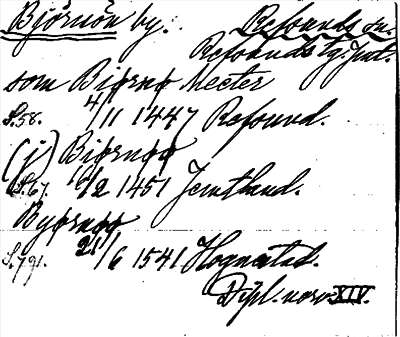 Björnön by. Refsunds sn.
Refsunds tg. Jmt.
som Biørnø heeter
S.58. 4/11 1447 Refsund.
(j) Biørnøø
S.67. 16/2 1451 Jemtland.
Byørnøø
S.791. 21/6 1541
Dipl. norv. XIV.